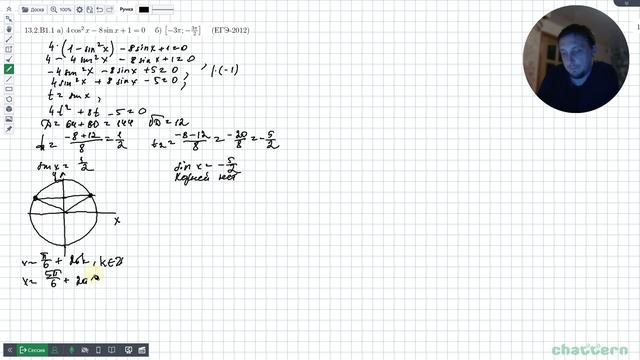 Доска
Ручка
13.2.B1.1 а) 4 cos² x − 8 sin x + 1 = 0 б) [−3π; −3π/2] (ЕГЭ-2012)
4·(1 − sin²x) − 8 sin x + 1 = 0
4 − 4 sin²x − 8 sin x + 1 = 0
−4 sin²x − 8 sin x + 5 = 0, |·(−1)
4 sin²x + 8 sin x − 5 = 0,
t = sin x,
4t² + 8t − 5 = 0
D = 64 + 80 = 144 √D = 12
t₁ = (−8+12)/8 = 1/2 t₂ = (−8−12)/8 = −20/8 = −5/2
sin x = 1/2 sin x = −5/2
Корней нет
y
x
x = π/6 + 2πk, k∈Z
x = 5π/6 + 2π
Сессия
chattern